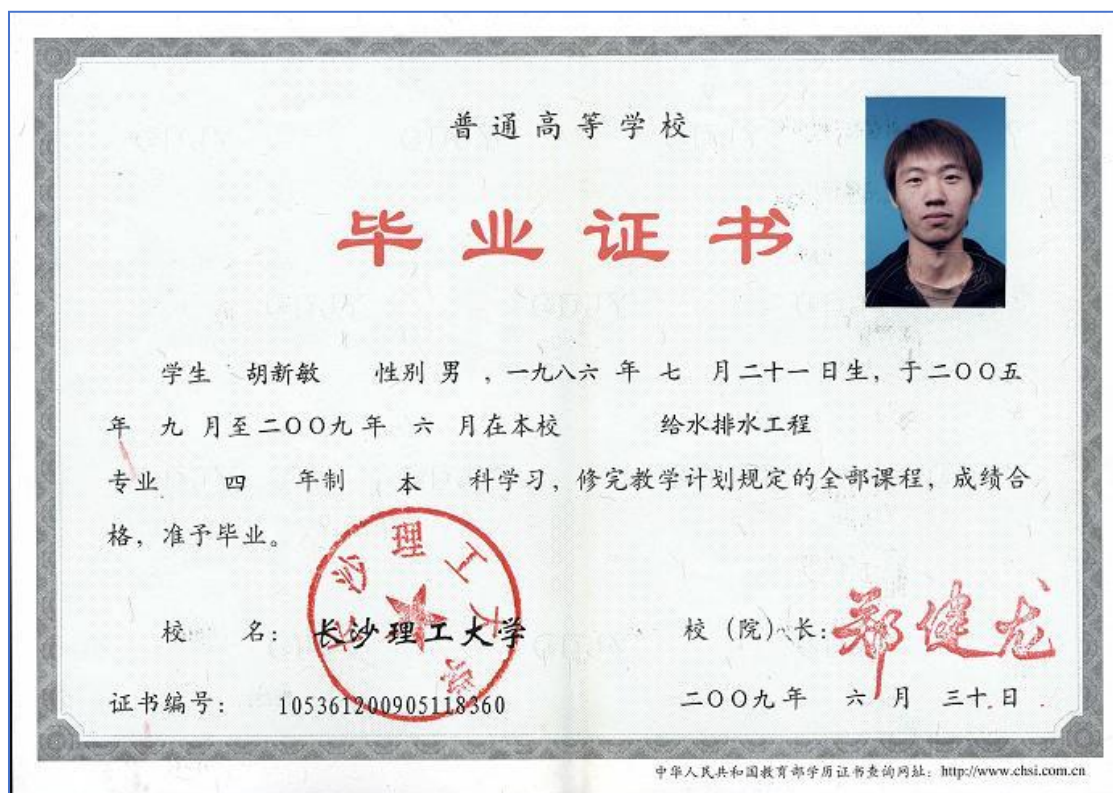 普通高等学校
毕业证书
学生 胡新敏 性别 男 ,一九八六 年 七 月二十一日生, 于二〇〇五
年 九 月至二〇〇九年 六 月在本校 给水排水工程
专业 四 年制 本 科学习, 修完教学计划规定的全部课程, 成绩合
格, 准予毕业。
长沙理工大学
校 名: 长沙理工大学 校 (院) 长: 郑健龙
证书编号: 105361200905118360 二〇〇九年 六 月 三十 日
中华人民共和国教育部学历证书查询网址: http://www.chsi.com.cn